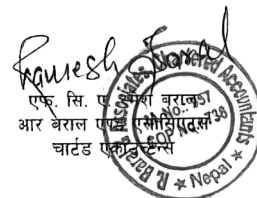 Ramesh Baral
एफ. सि. ए. रमेश बराल
आर बराल एण्ड एसोसिएट्स
चार्टर्ड एकाउन्टेन्ट्स
R. Baral & Associates, Chartered Accountants
Nepal